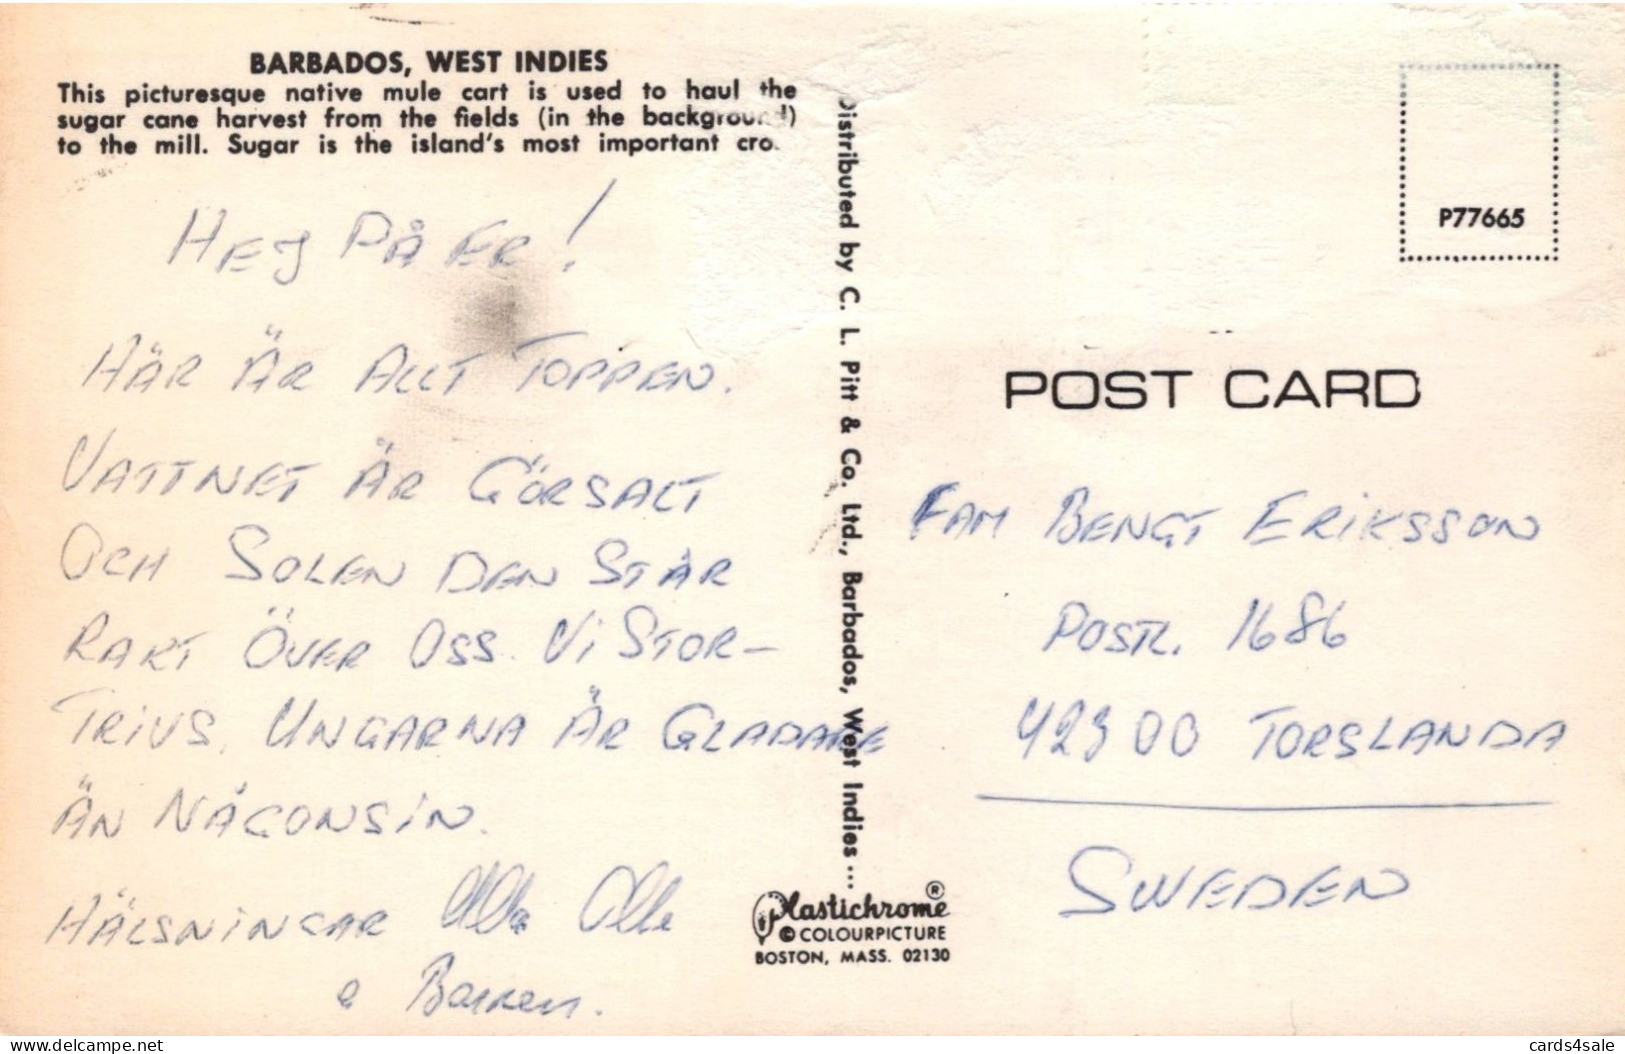 BARBADOS, WEST INDIES
This picturesque native mule cart is used to haul the
sugar cane harvest from the fields (in the background)
to the mill. Sugar is the island's most important cro
HEJ PÅ ER!
HÄR ÄR ALLT TOPPEN.
VATTNET ÄR GÖRSALT
OCH SOLEN DEN STÅR
RAKT ÖVER OSS. VI STOR-
TRIVS. UNGARNA ÄR GLADARE
ÄN NÅGONSIN.
HÄLSNINGAR Ulla Olle
o Barnen.
Distributed by C. L. Pitt & Co. Ltd., Barbados, West Indies ...
Plastichrome®
© COLOURPICTURE
BOSTON, MASS. 02130
P77665
POST CARD
FAM BENGT ERIKSSON
POSTL. 1686
423 00 TORSLANDA
SWEDEN
cards4sale
https://www.delcampe.net